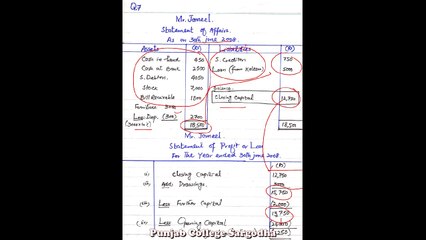 Q7
Mr. Jameel.
Statement of Affairs.
As on 30th June 2008.
Assets (Rs) Liabilities (Rs)
Cash in hand 450 S. Creditors 750
Cash at Bank 2500 Loan (from Kaleem) 5000
S. Debtors 4050
Stock 7,000
Bill Receivable 1800 Closing Capital 12,750
Furniture 3000
Less Dep. (300) 2700
18,500 18,500
Mr. Jameel
Statement of Profit or Loss
For The Year ended 30th June 2008.
(Rs)
(i) Closing Capital 12,750
(ii) Add Drawings 3000
15,750
(iii) Less Further Capital (2,000)
13,750
(iv) Less Opening Capital
Punjab College Sargodha